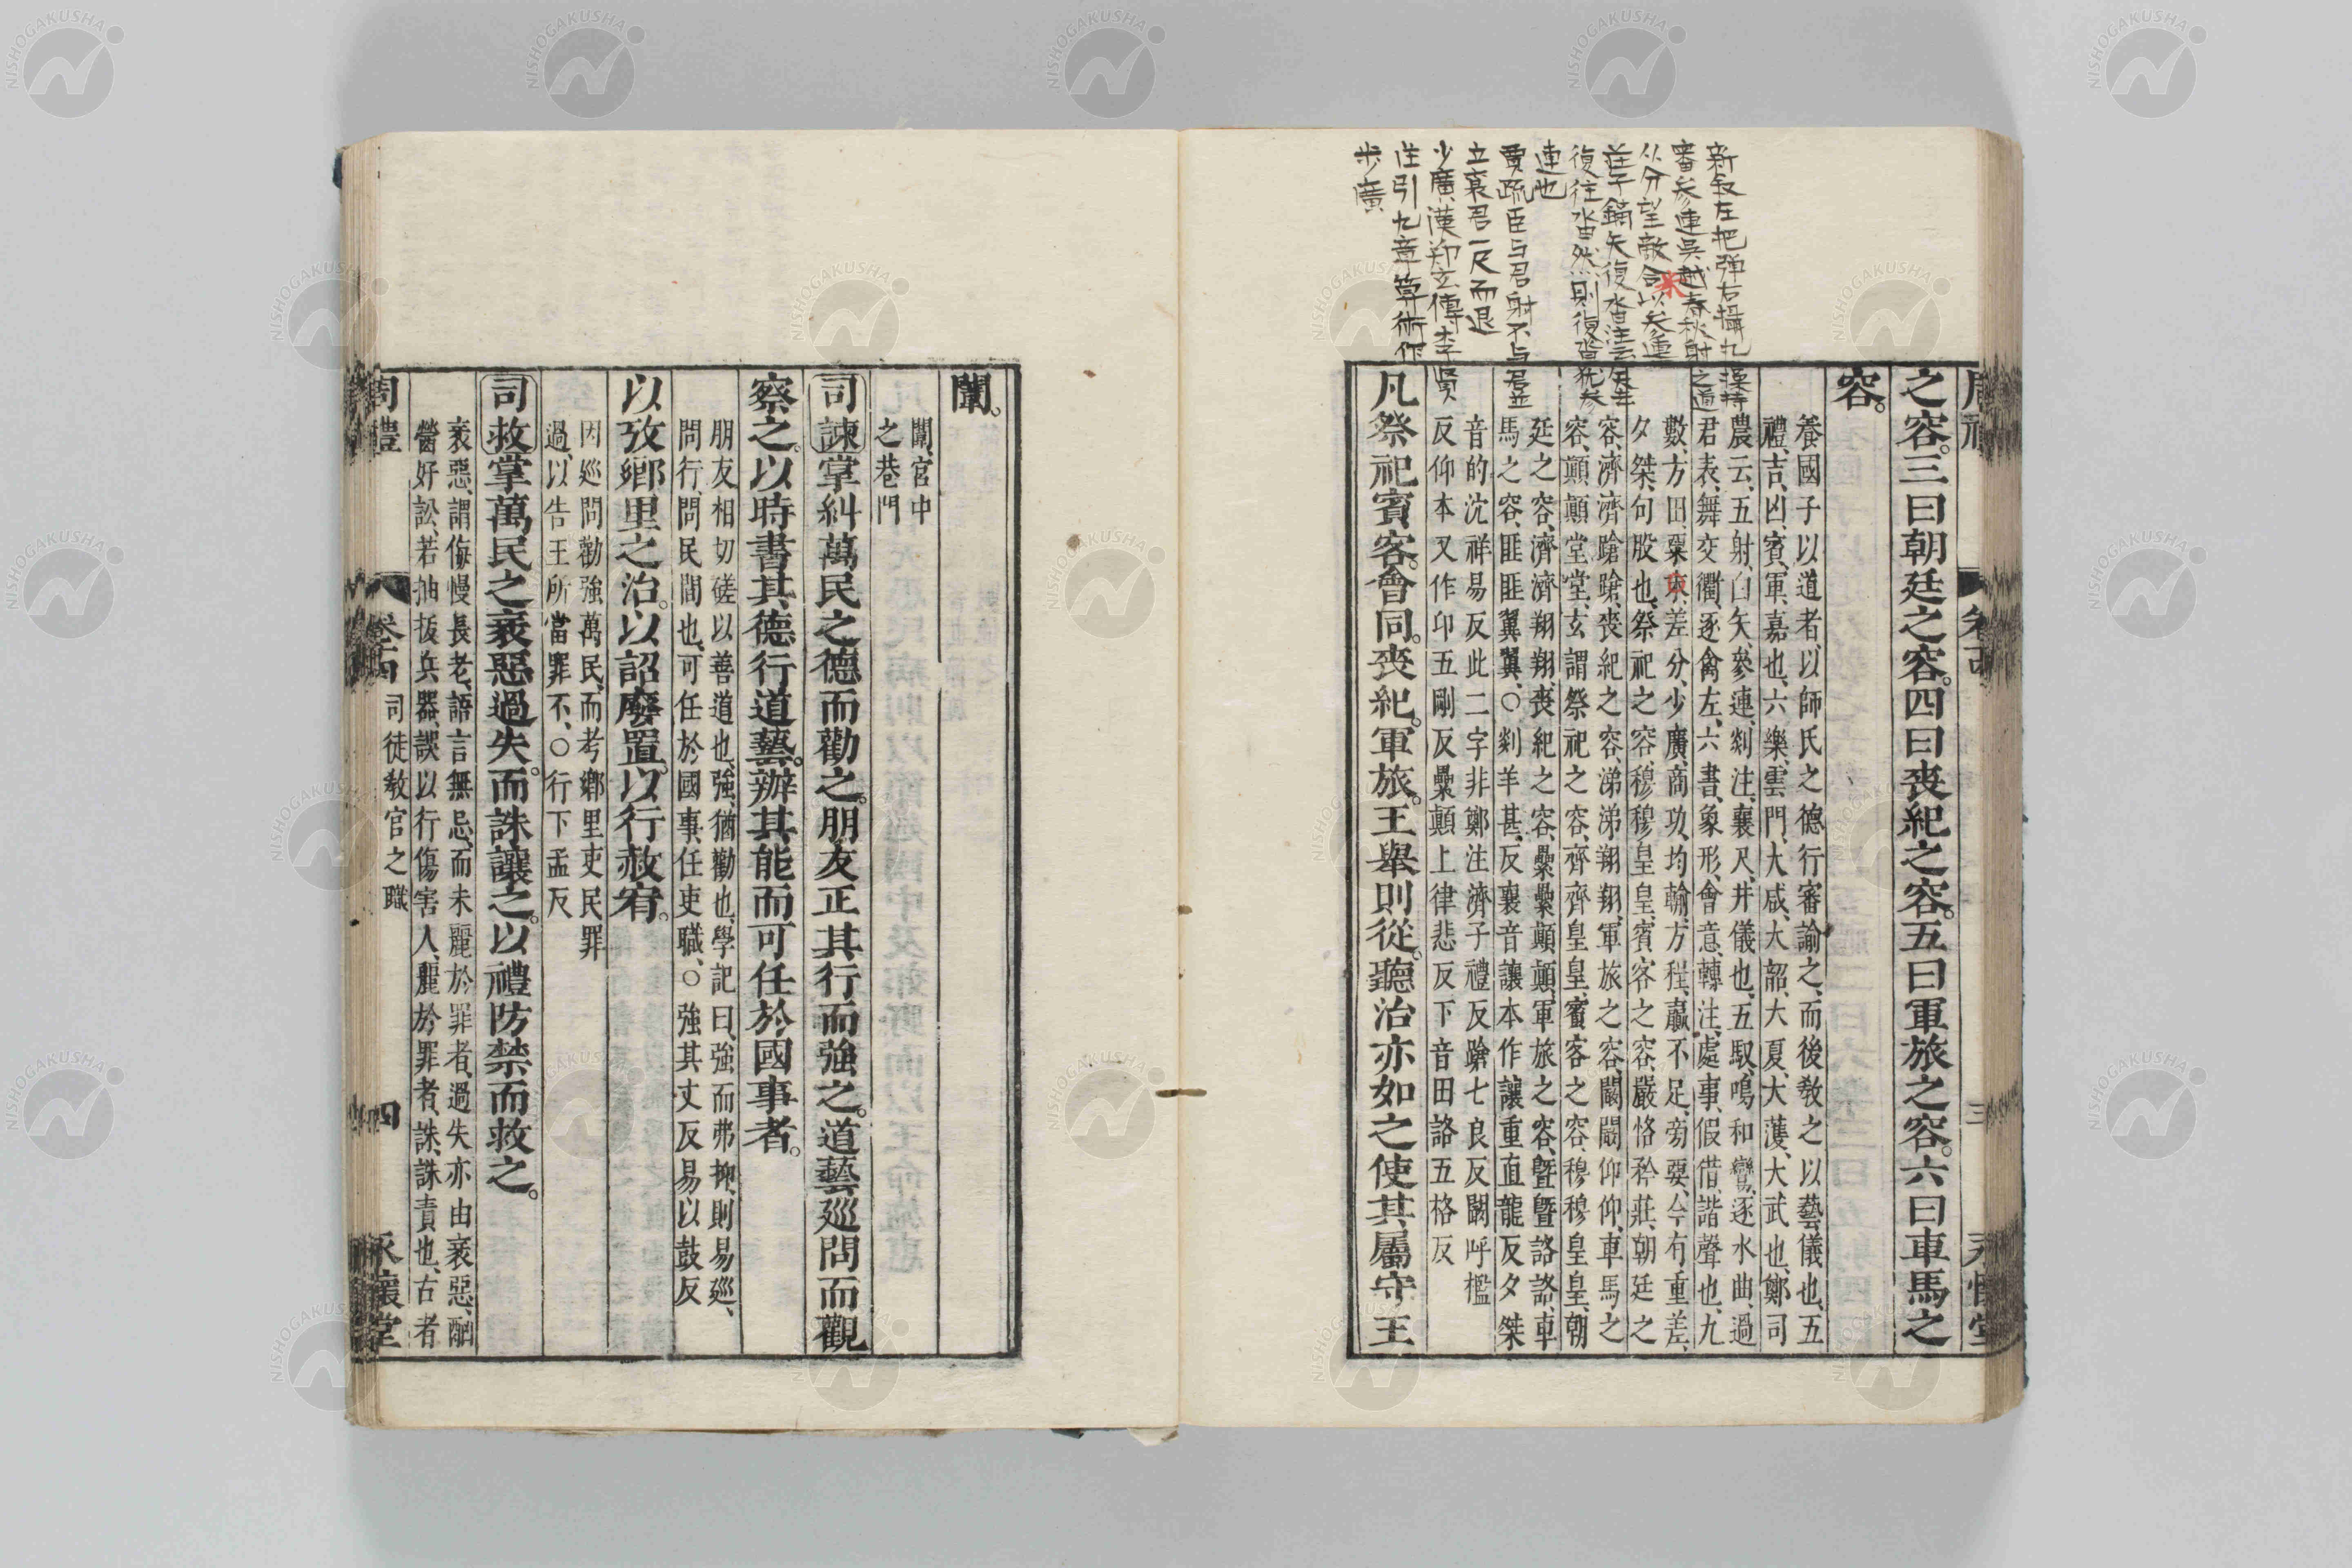 新敘左把彈右攝丸操持
審參連吳越春秋射之道
从分望敵合以參連
莊子鏑矢復沓注云矢去
復往沓由然則復沓猶參
連也
賈疏臣与君射不与君並
立襄君一尺而退
少廣漢鄭玄傳李賢
注引九章算術作
步廣
之容。三曰朝廷之容。四曰喪紀之容。五曰軍旅之容。六曰車馬之
容。
養國子以道者、以師氏之德行審諭之、而後敎之以藝儀也、五
禮、吉、凶、賓、軍、嘉也、六樂、雲門、大咸、大韶、大夏、大濩、大武也、鄭司
農云、五射、白矢、參連、剡注、襄尺、井儀也、五馭、鳴和鸞、逐水曲、過
君表、舞交衢、逐禽左、六書、象形、會意、轉注、處事、假借、諧聲也、九
數、方田、粟米、差分、少廣、商功、均輸、方程、贏不足、旁要、今有重差、
夕桀、句股也、祭祀之容、穆穆皇皇、賓客之容、嚴恪矜莊、朝廷之
容、濟濟蹌蹌、喪紀之容、涕涕翔翔、軍旅之容、闞闞仰仰、車馬之
容、顚顚堂堂、玄謂祭祀之容、齊齊皇皇、賓客之容、穆穆皇皇、朝
廷之容、濟濟翔翔、喪紀之容、纍纍顚顚、軍旅之容、曁曁詻詻、車
馬之容、匪匪翼翼、○剡羊甚、反襄音讓本作讓重直龍反夕桀
音的沈祥易反此二字非鄭注濟子禮反蹌七良反闞呼檻
反仰本又作卬五剛反纍顚上律悲反下音田詻五格反
凡祭祀賓客。會同。喪紀。軍旅。王舉則從。聽治亦如之使其屬守王
周禮 卷十四 三 永懷堂
闈。
闈、宮中
之巷門
司諫掌糾萬民之德而勸之。朋友正其行而強之。道藝巡問而觀
察之。以時書其德行道藝。辨其能而可任於國事者。
朋友相切磋以善道也、強、猶勸也、學記曰、強而弗抑、則易巡、
問行、問民間也、可任於國事、任吏職、○強其丈反易以鼓反
以攷鄕里之治。以詔廢置。以行赦宥。
因巡問勸強萬民、而考鄕里吏民罪
過、以告王所當罪不、○行下孟反
司救掌萬民之衺惡過失。而誅讓之。以禮防禁而救之。
衺惡、謂侮慢長老、語言無忌、而未麗於罪者、過失亦由衺惡、酗
醟好訟、若抽拔兵器、誤以行傷害人、麗於罪者、誅、誅責也、古者
周禮 卷十四 司徒敎官之職 四 永懷堂